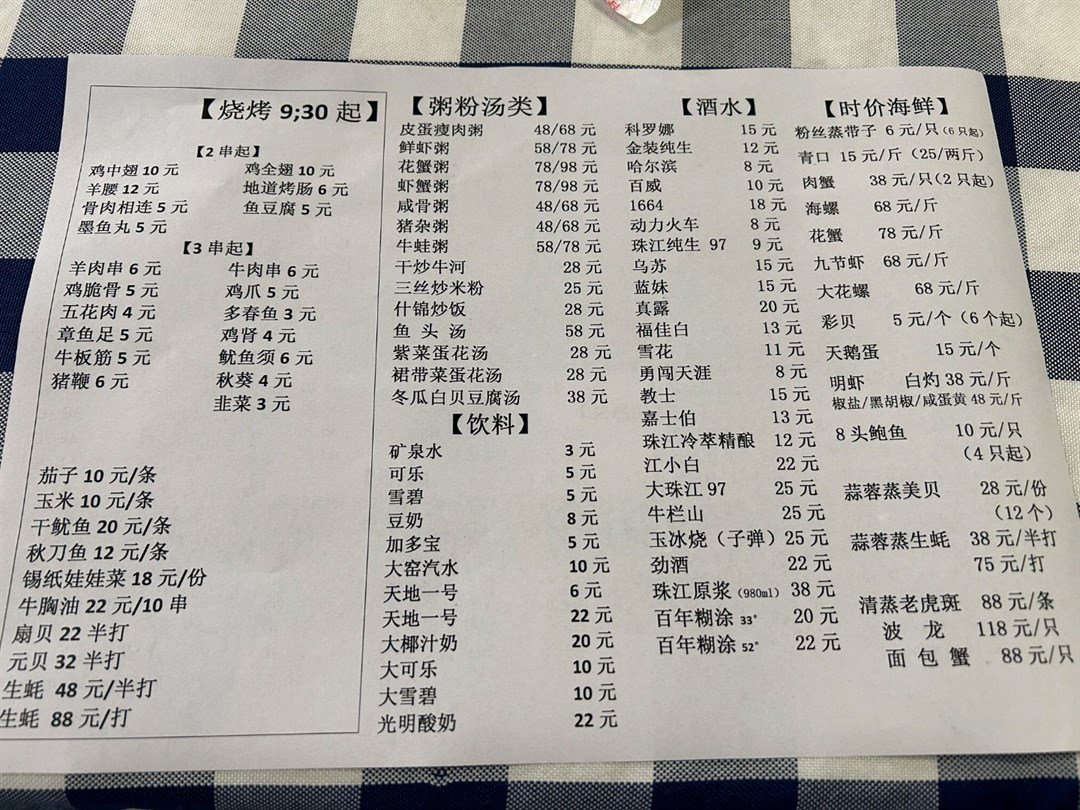 【烧烤 9;30 起】
【2 串起】
鸡中翅 10 元 鸡全翅 10 元
羊腰 12 元 地道烤肠 6 元
骨肉相连 5 元 鱼豆腐 5 元
墨鱼丸 5 元
【3 串起】
羊肉串 6 元 牛肉串 6 元
鸡脆骨 5 元 鸡爪 5 元
五花肉 4 元 多春鱼 3 元
章鱼足 5 元 鸡肾 4 元
牛板筋 5 元 鱿鱼须 6 元
猪鞭 6 元 秋葵 4 元
韭菜 3 元
茄子 10 元/条
玉米 10 元/条
干鱿鱼 20 元/条
秋刀鱼 12 元/条
锡纸娃娃菜 18 元/份
牛胸油 22 元/10 串
扇贝 22 半打
元贝 32 半打
生蚝 48 元/半打
生蚝 88 元/打
【粥粉汤类】
皮蛋瘦肉粥 48/68 元
鲜虾粥 58/78 元
花蟹粥 78/98 元
虾蟹粥 78/98 元
咸骨粥 48/68 元
猪杂粥 48/68 元
牛蛙粥 58/78 元
干炒牛河 28 元
三丝炒米粉 25 元
什锦炒饭 28 元
鱼 头 汤 58 元
紫菜蛋花汤 28 元
裙带菜蛋花汤 28 元
冬瓜白贝豆腐汤 38 元
【饮料】
矿泉水 3 元
可乐 5 元
雪碧 5 元
豆奶 8 元
加多宝 5 元
大窑汽水 10 元
天地一号 6 元
天地一号 22 元
大椰汁奶 20 元
大可乐 10 元
大雪碧 10 元
光明酸奶 22 元
【酒水】
科罗娜 15 元
金装纯生 12 元
哈尔滨 8 元
百威 10 元
1664 18 元
动力火车 8 元
珠江纯生 97 9 元
乌苏 15 元
蓝妹 15 元
真露 20 元
福佳白 13 元
雪花 11 元
勇闯天涯 8 元
教士 15 元
嘉士伯 13 元
珠江冷萃精酿 12 元
江小白 22 元
大珠江 97 25 元
牛栏山 25 元
玉冰烧（子弹）25 元
劲酒 22 元
珠江原浆（980ml）38 元
百年糊涂 33° 20 元
百年糊涂 52° 22 元
【时价海鲜】
粉丝蒸带子 6 元/只（6 只起）
青口 15 元/斤（25/两斤）
肉蟹 38 元/只（2 只起）
海螺 68 元/斤
花蟹 78 元/斤
九节虾 68 元/斤
大花螺 68 元/斤
彩贝 5 元/个（6 个起）
天鹅蛋 15 元/个
明虾 白灼 38 元/斤
椒盐/黑胡椒/咸蛋黄 48 元/斤
8 头鲍鱼 10 元/只
（4 只起）
蒜蓉蒸美贝 28 元/份
（12 个）
蒜蓉蒸生蚝 38 元/半打
75 元/打
清蒸老虎斑 88 元/条
波 龙 118 元/只
面 包 蟹 88 元/只